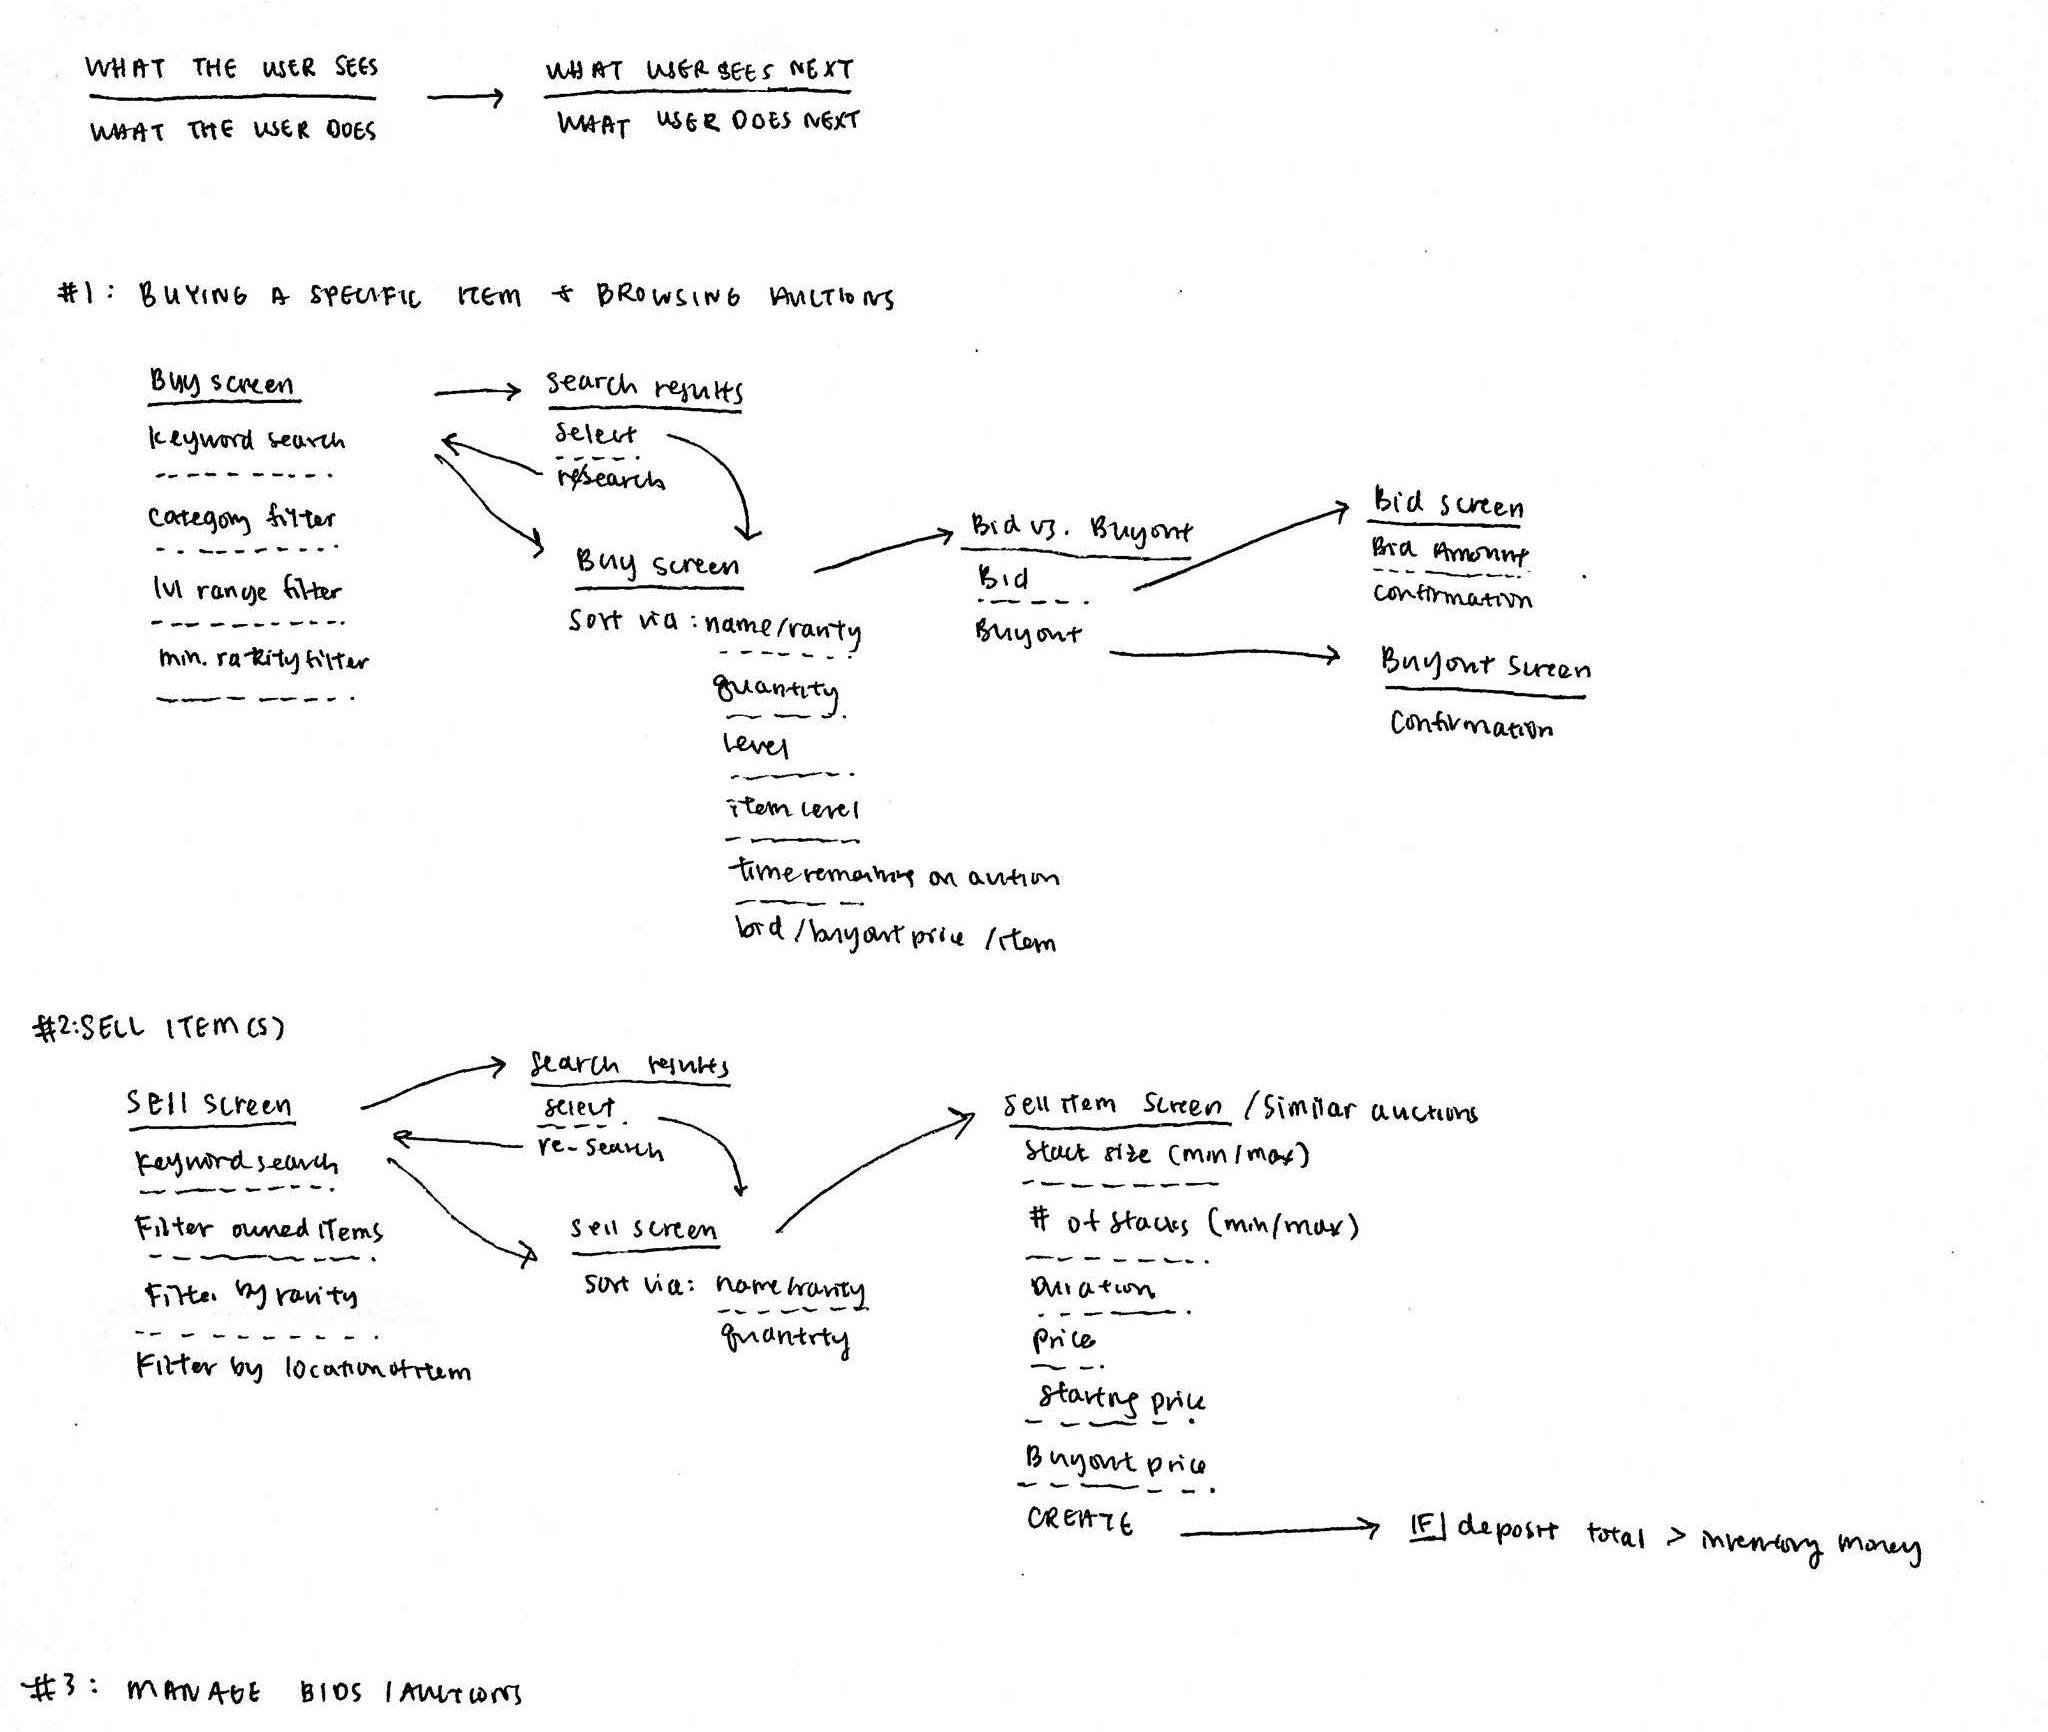 WHAT THE USER SEES
WHAT THE USER DOES
WHAT USER SEES NEXT
WHAT USER DOES NEXT
#1: BUYING A SPECIFIC ITEM + BROWSING AUCTIONS
Buy screen
keyword search
category filter
lvl range filter
min. rarity filter
search results
select
research
Buy screen
Sort via: name/rarity
quantity
level
item level
time remaining on auction
bid/buyout price/item
Bid vs. Buyout
Bid
Buyout
Bid screen
Bid Amount
confirmation
Buyout Screen
confirmation
#2: SELL ITEM(S)
Sell screen
keyword search
Filter owned items
Filter by rarity
Filter by location of item
search results
select
re-search
sell screen
Sort via: name/rarity
quantity
sell item screen / similar auctions
stack size (min/max)
# of stacks (min/max)
Duration
Price
starting price
Buyout price
CREATE
IF deposit total > inventory money
#3: MANAGE BIDS / AUCTIONS